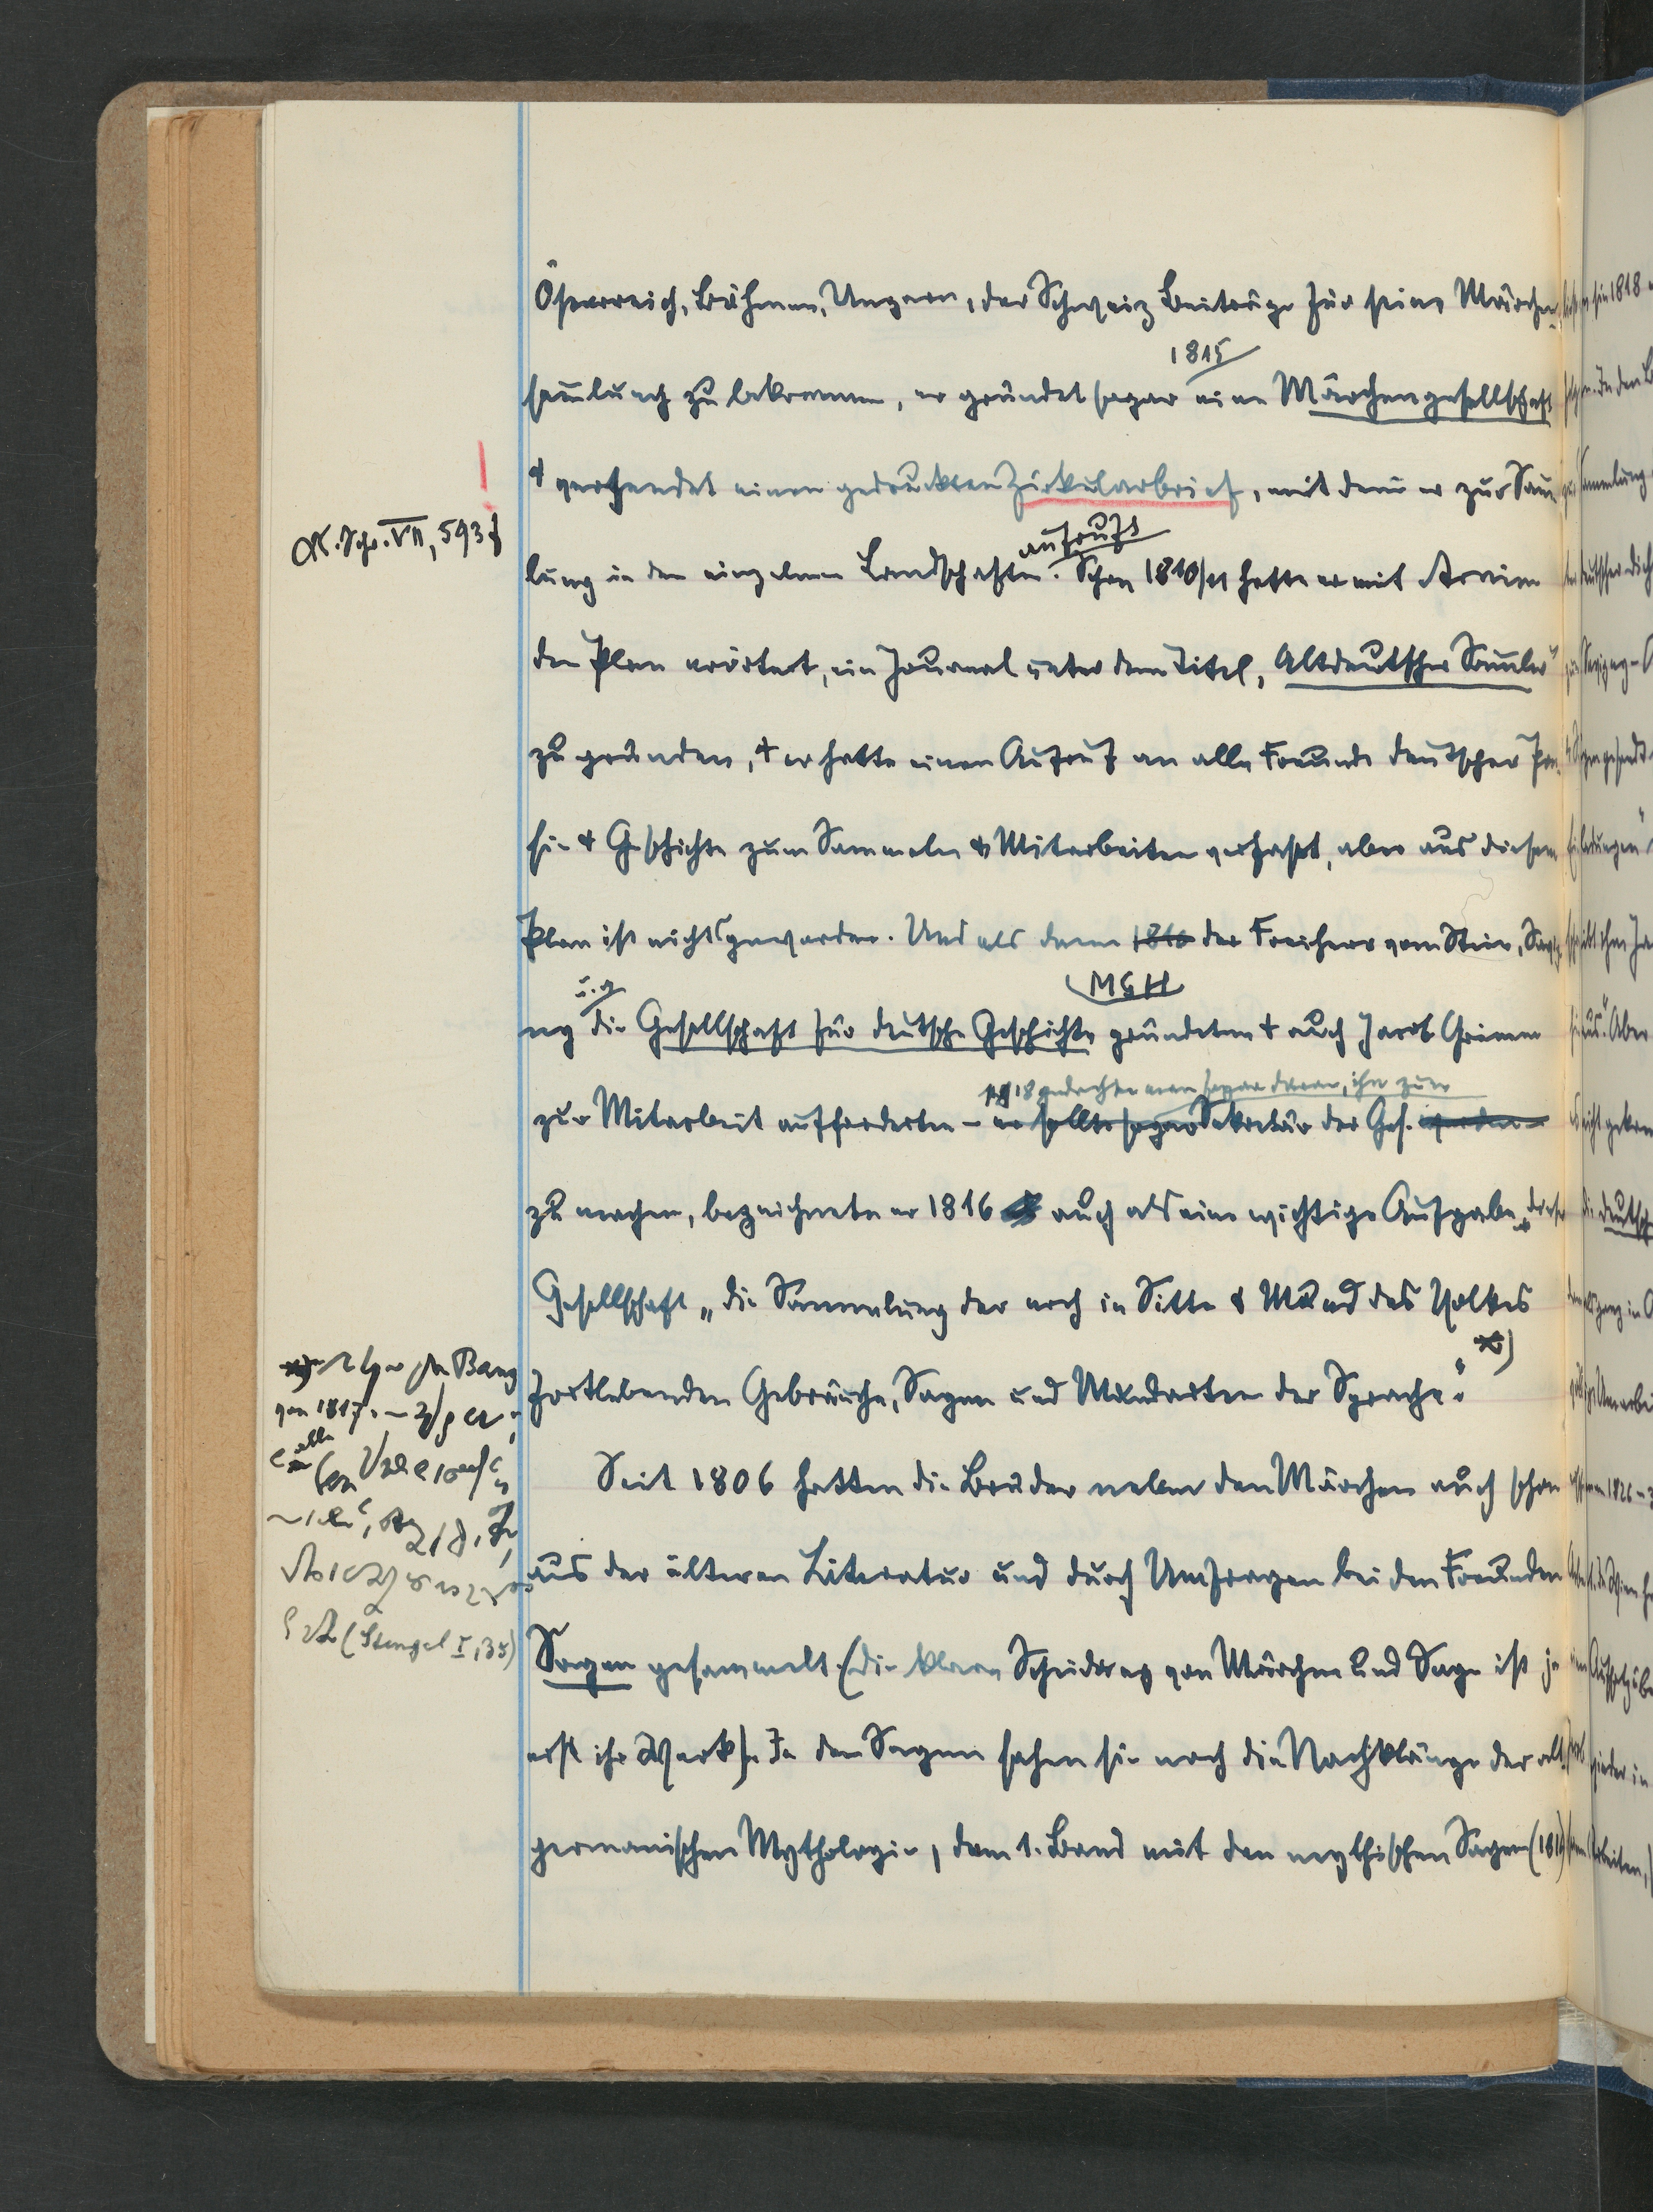 Österreich, Böhmen, Ungarn, der Schweiz Beiträge für seine Märchen-
1815
sam̅lung zu bekommen, er gründet sogar eine Märchengesellschaft
+ versendet einen gedruckten Zirkularbrief, mit dem er zur Sam̅-
Kl. Schr. VII, 593 f
aufruft
lung in den einzelnen Landschaften. Schon 1810/11 hatte er mit Arnim
den Plan erörtert, ein Journal unter dem Titel „Altdeutscher Sam̅ler“
zu gründen, + er hatte einen Aufruf an alle Freunde deutscher Poe-
sie + Geschichte zum Sammeln + Mitarbeiten verfasst, aber aus diesem
Plan ist nichts geworden. Und als dann 1816 der Freiherr vom Stein, Savig-
u. a. MGH
ny die Gesellschaft für deutsche Geschichte gründeten + auch Jacob Grimm
1818 gedachte man sogar daran, ihn zum
zur Mitarbeit aufforderten – er sollte sogar Sekretär der Ges. werden –
zu machen, bezeichnete er 1816 auch als eine wichtige Aufgabe dieser
Gesellschaft „die Sammlung der noch in Sitte & Mund des Volkes
x)
fortlebenden Gebräuche, Sagen und Mundarten der Sprache“.
x) Bang
von 1817
alle
(Stengel I, 35)
Seit 1806 hatten die Brüder neben den Märchen auch schon
aus der älteren Literatur und durch Umfragen bei den Freunden
Sagen gesammelt (die klare Scheidung von Märchen und Sage ist ja
erst ihr Werk). In den Sagen sahen sie noch die Nachklänge der alt-
germanischen Mythologie, dem 1. Band mit den mythischen Sagen (1816)